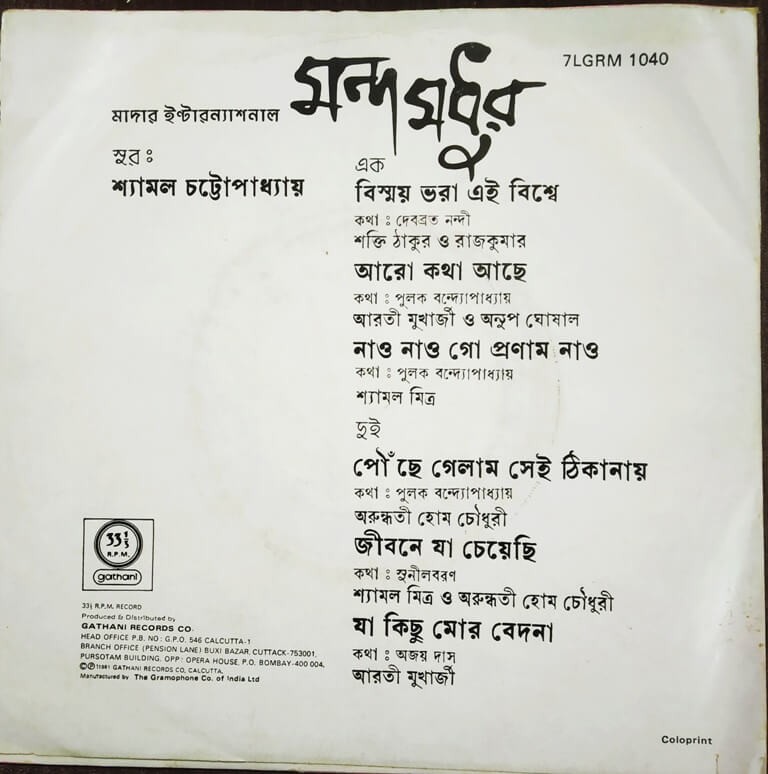 মন্দ মধুর
7LGRM 1040
মাদার ইন্টারন্যাশনাল
সুর :
শ্যামল চট্টোপাধ্যায়
এক
বিস্ময় ভরা এই বিশ্বে
কথা : দেবব্রত নন্দী
শক্তি ঠাকুর ও রাজকুমার
আরো কথা আছে
কথা : পুলক বন্দ্যোপাধ্যায়
আরতী মুখার্জী ও অনুপ ঘোষাল
নাও নাও গো প্রণাম নাও
কথা : পুলক বন্দ্যোপাধ্যায়
শ্যামল মিত্র
দুই
পৌঁছে গেলাম সেই ঠিকানায়
কথা : পুলক বন্দ্যোপাধ্যায়
অরুন্ধতী হোম চৌধুরী
জীবনে যা চেয়েছি
কথা : সুনীলবরণ
শ্যামল মিত্র ও অরুন্ধতী হোম চৌধুরী
যা কিছু মোর বেদনা
কথা : অজয় দাস
আরতী মুখার্জী
33⅓
R.P.M.
gathani
33⅓ R.P.M. RECORD
Produced & Distributed by
GATHANI RECORDS CO.
HEAD OFFICE P.B. NO : G.P.O. 546 CALCUTTA-1
BRANCH OFFICE (PENSION LANE) BUXI BAZAR, CUTTACK-753001.
PURSOTAM BUILDING. OPP : OPERA HOUSE, P.O. BOMBAY-400 004.
©℗1981 GATHANI RECORDS CO, CALCUTTA.
Manufactured by The Gramophone Co. of India Ltd
Coloprint